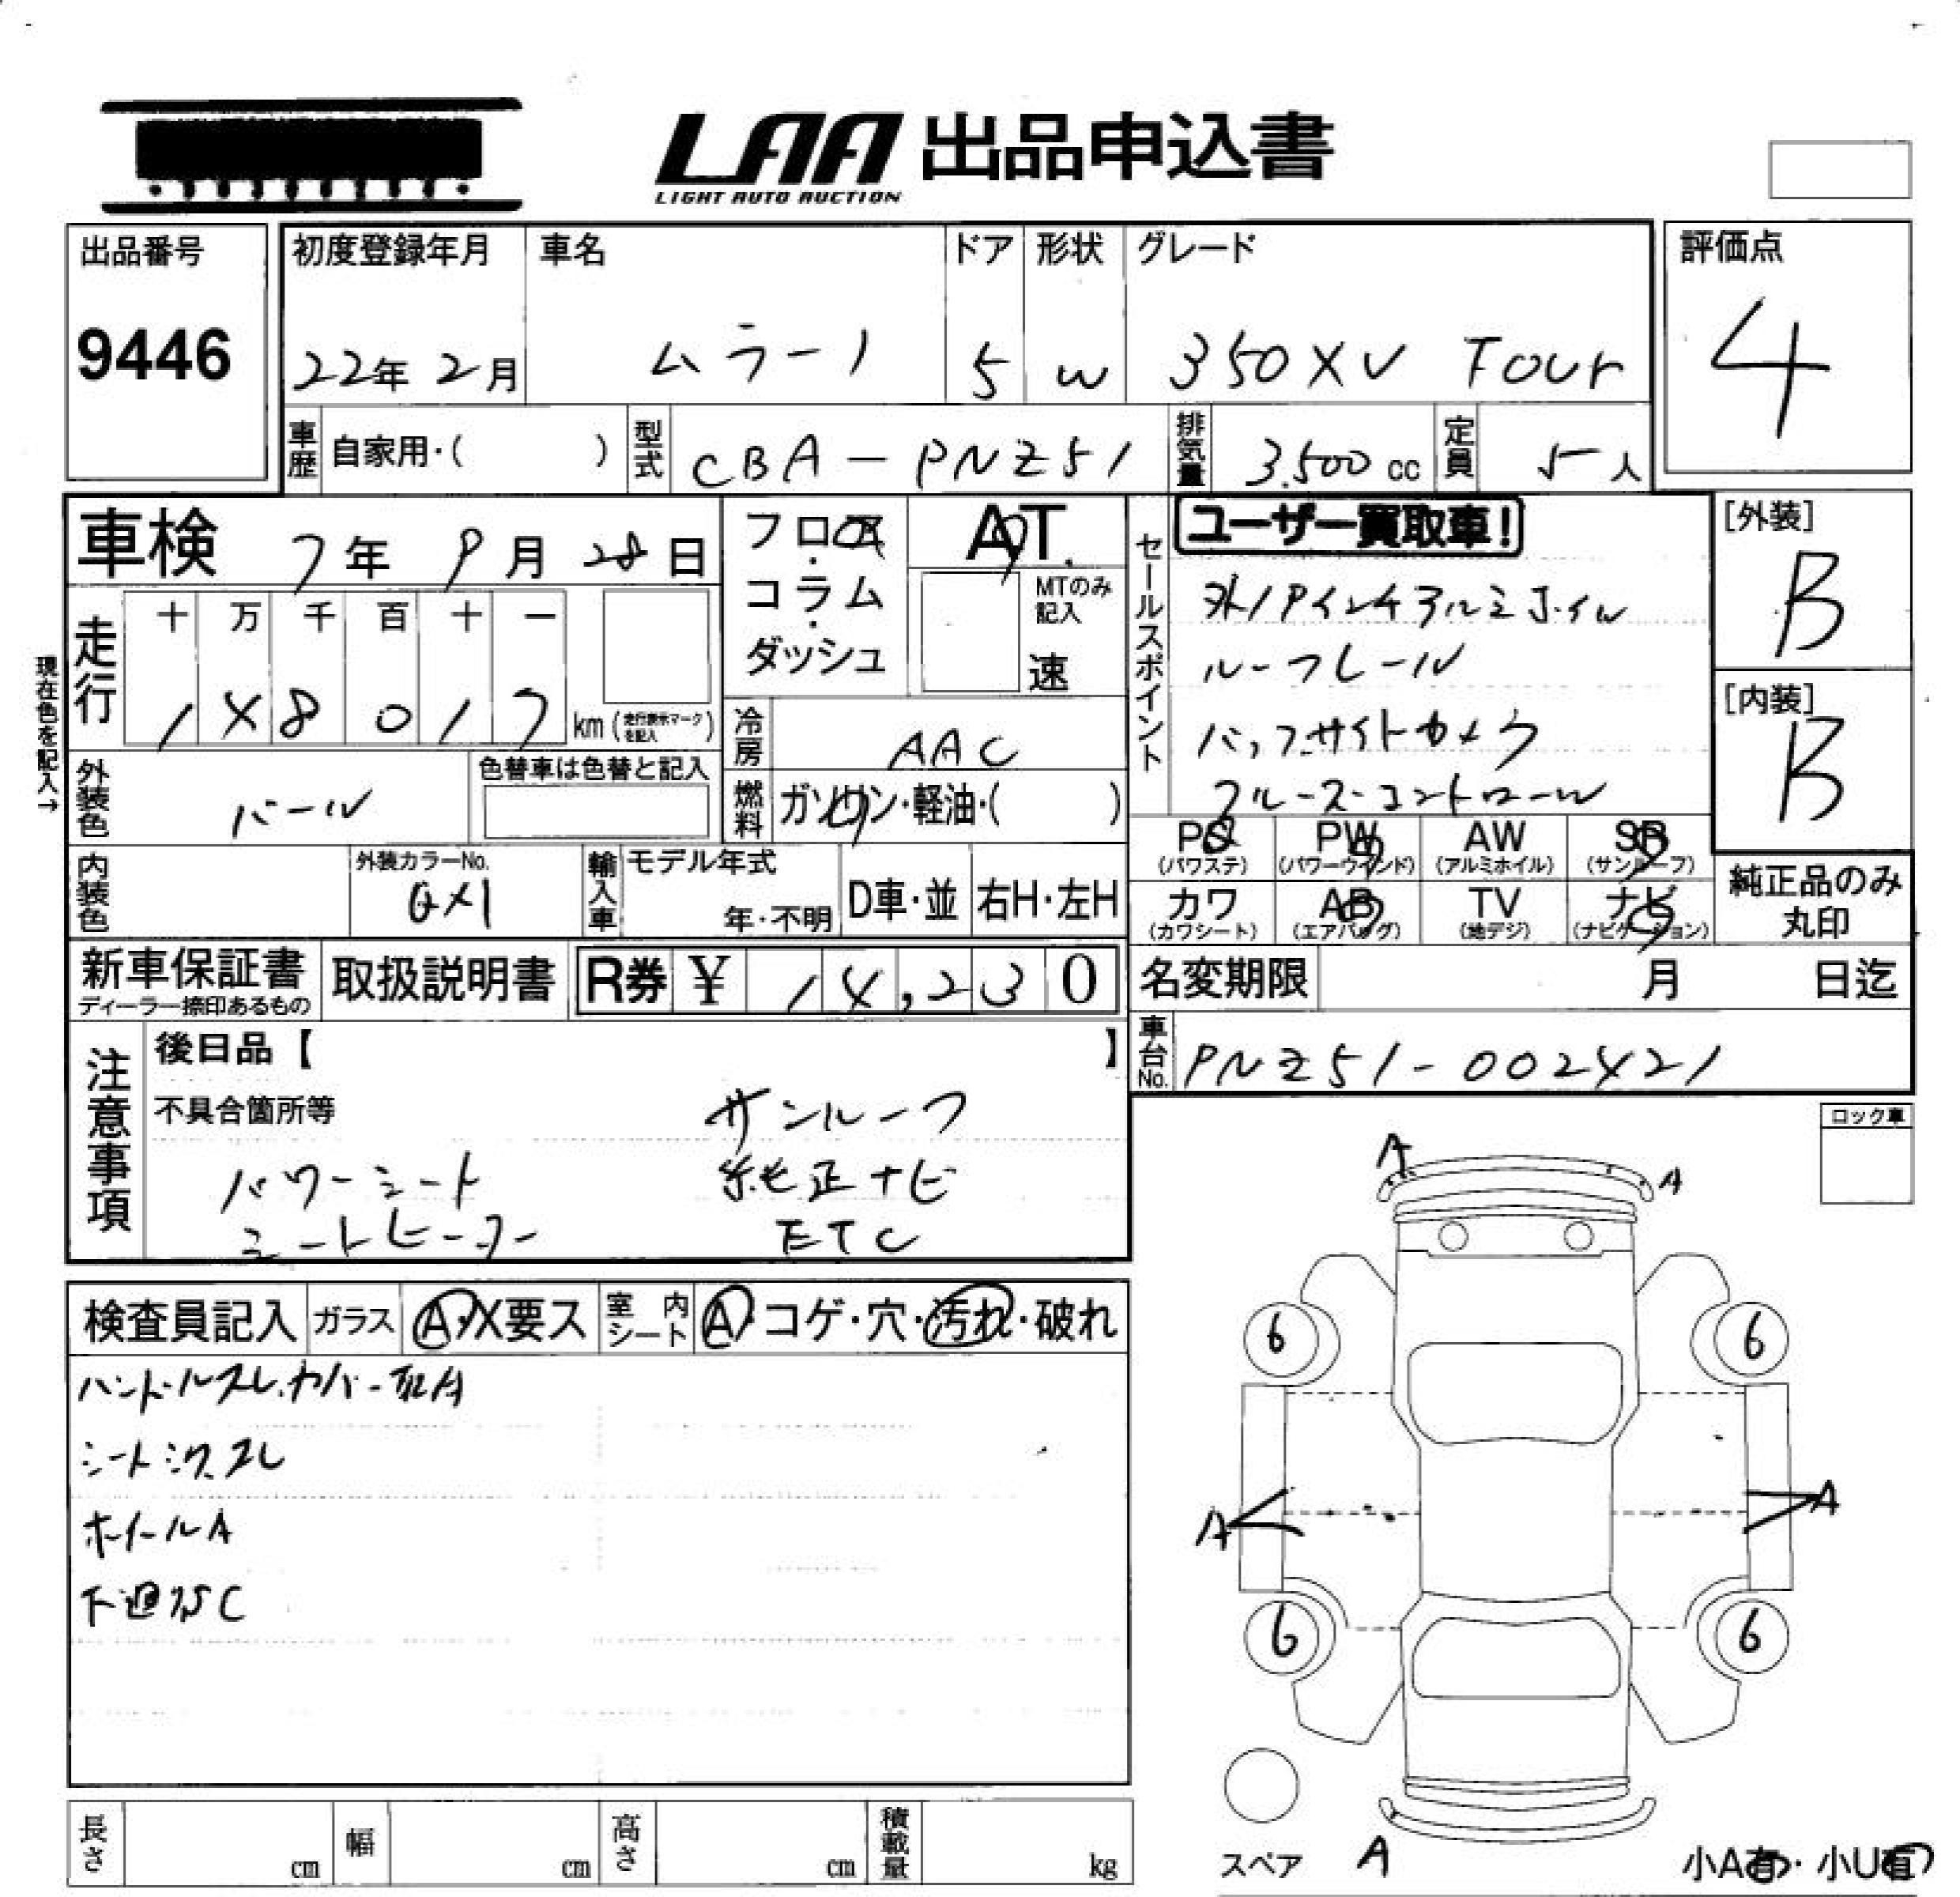 LAA 出品申込書
LIGHT AUTO AUCTION
出品番号
9446
初度登録年月
22年 2月
車名
ムラーノ
ドア
5
形状
W
グレード
350XV Four
評価点
4
車歴 自家用・( )
型式 CBA-PNZ51
排気量 3.500 cc
定員 5人
車検 7年 9月 28日
フロア・コラム・ダッシュ
AT.
MTのみ記入
速
セールスポイント
ユーザー買取車!
外18インチアルミホイル
ルーフレール
バックサイドカメラ
クルーズコントロール
[外装]
B
[内装]
B
現在色を記入→
走行
十 万 千 百 十 一
1 4 8 0 1 7 km (走行表示マークを記入)
冷房 AAC
外装色 パール
色替車は色替と記入
燃料 ガソリン・軽油・( )
PS (パワステ)
PW (パワーウインド)
AW (アルミホイル)
SR (サンルーフ)
カワ (カワシート)
AB (エアバッグ)
TV (地デジ)
ナビ (ナビゲーション)
純正品のみ丸印
内装色
外装カラーNo.
QX1
輸入車
モデル年式
年・不明
D車・並
右H・左H
新車保証書
ディーラー捺印あるもの
取扱説明書
R券 ¥ 14,230
名変期限 月 日迄
車台No. PNZ51-002421
注意事項
後日品【 】
不具合箇所等
サンルーフ
パワーシート 純正ナビ
シートヒーター ETC
ロック車
検査員記入
ガラス A・X要ス
室内シート A・コゲ・穴・汚れ・破れ
ハンドルスレ.カバー取付
シートシワ.スレ
ホイールA
下廻りSC
A
A
6 6
A
A
6 6
A
スペア
小A有・小U有
長さ cm
幅 cm
高さ cm
積載量 kg